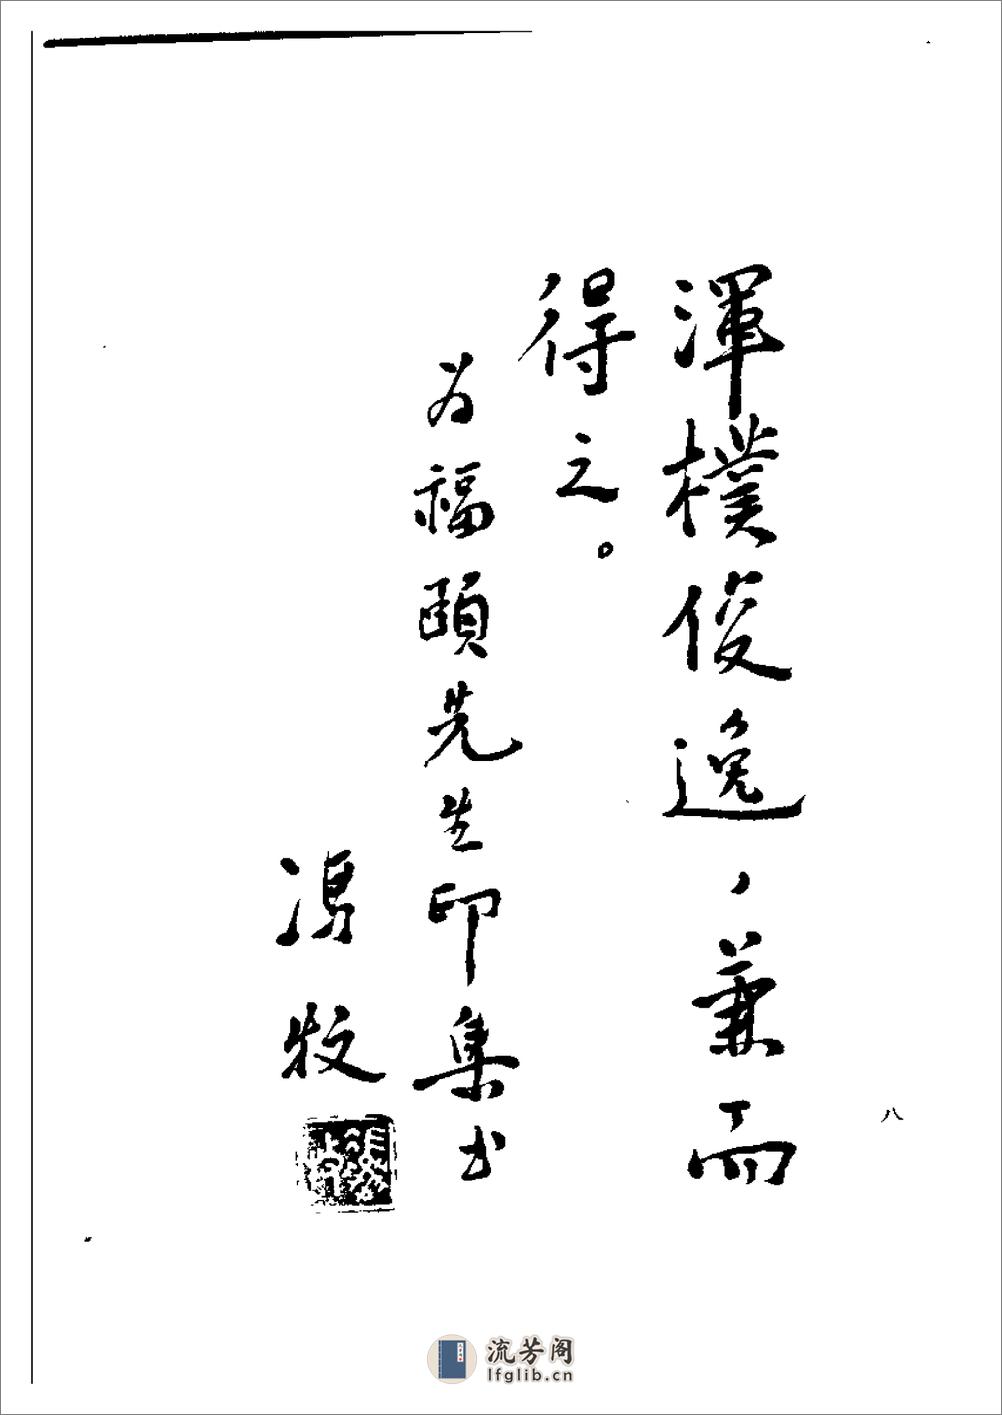 渾樸俊逸，兼而
得之。
为福頤先生印集书
冯牧
八
流芳阁
lfglib.cn